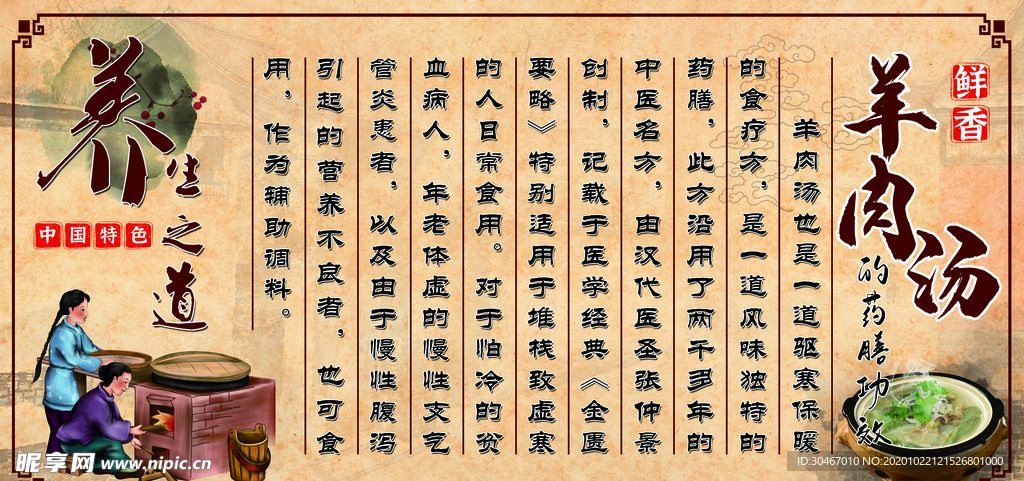 鲜香
羊肉汤
的药膳功效
羊肉汤也是一道驱寒保暖
的食疗方，是一道风味独特的
药膳，此方沿用了两千多年的
中医名方，由汉代医圣张仲景
创制，记载于医学经典《金匮
要略》特别适用于堆栈致虚寒
的人日常食用。对于怕冷的贫
血病人，年老体虚的慢性支气
管炎患者，以及由于慢性腹泻
引起的营养不良者，也可食
用，作为辅助调料。
养生之道
中国特色
昵享网 www.nipic.cn
ID:30467010 NO:20201022121526801000